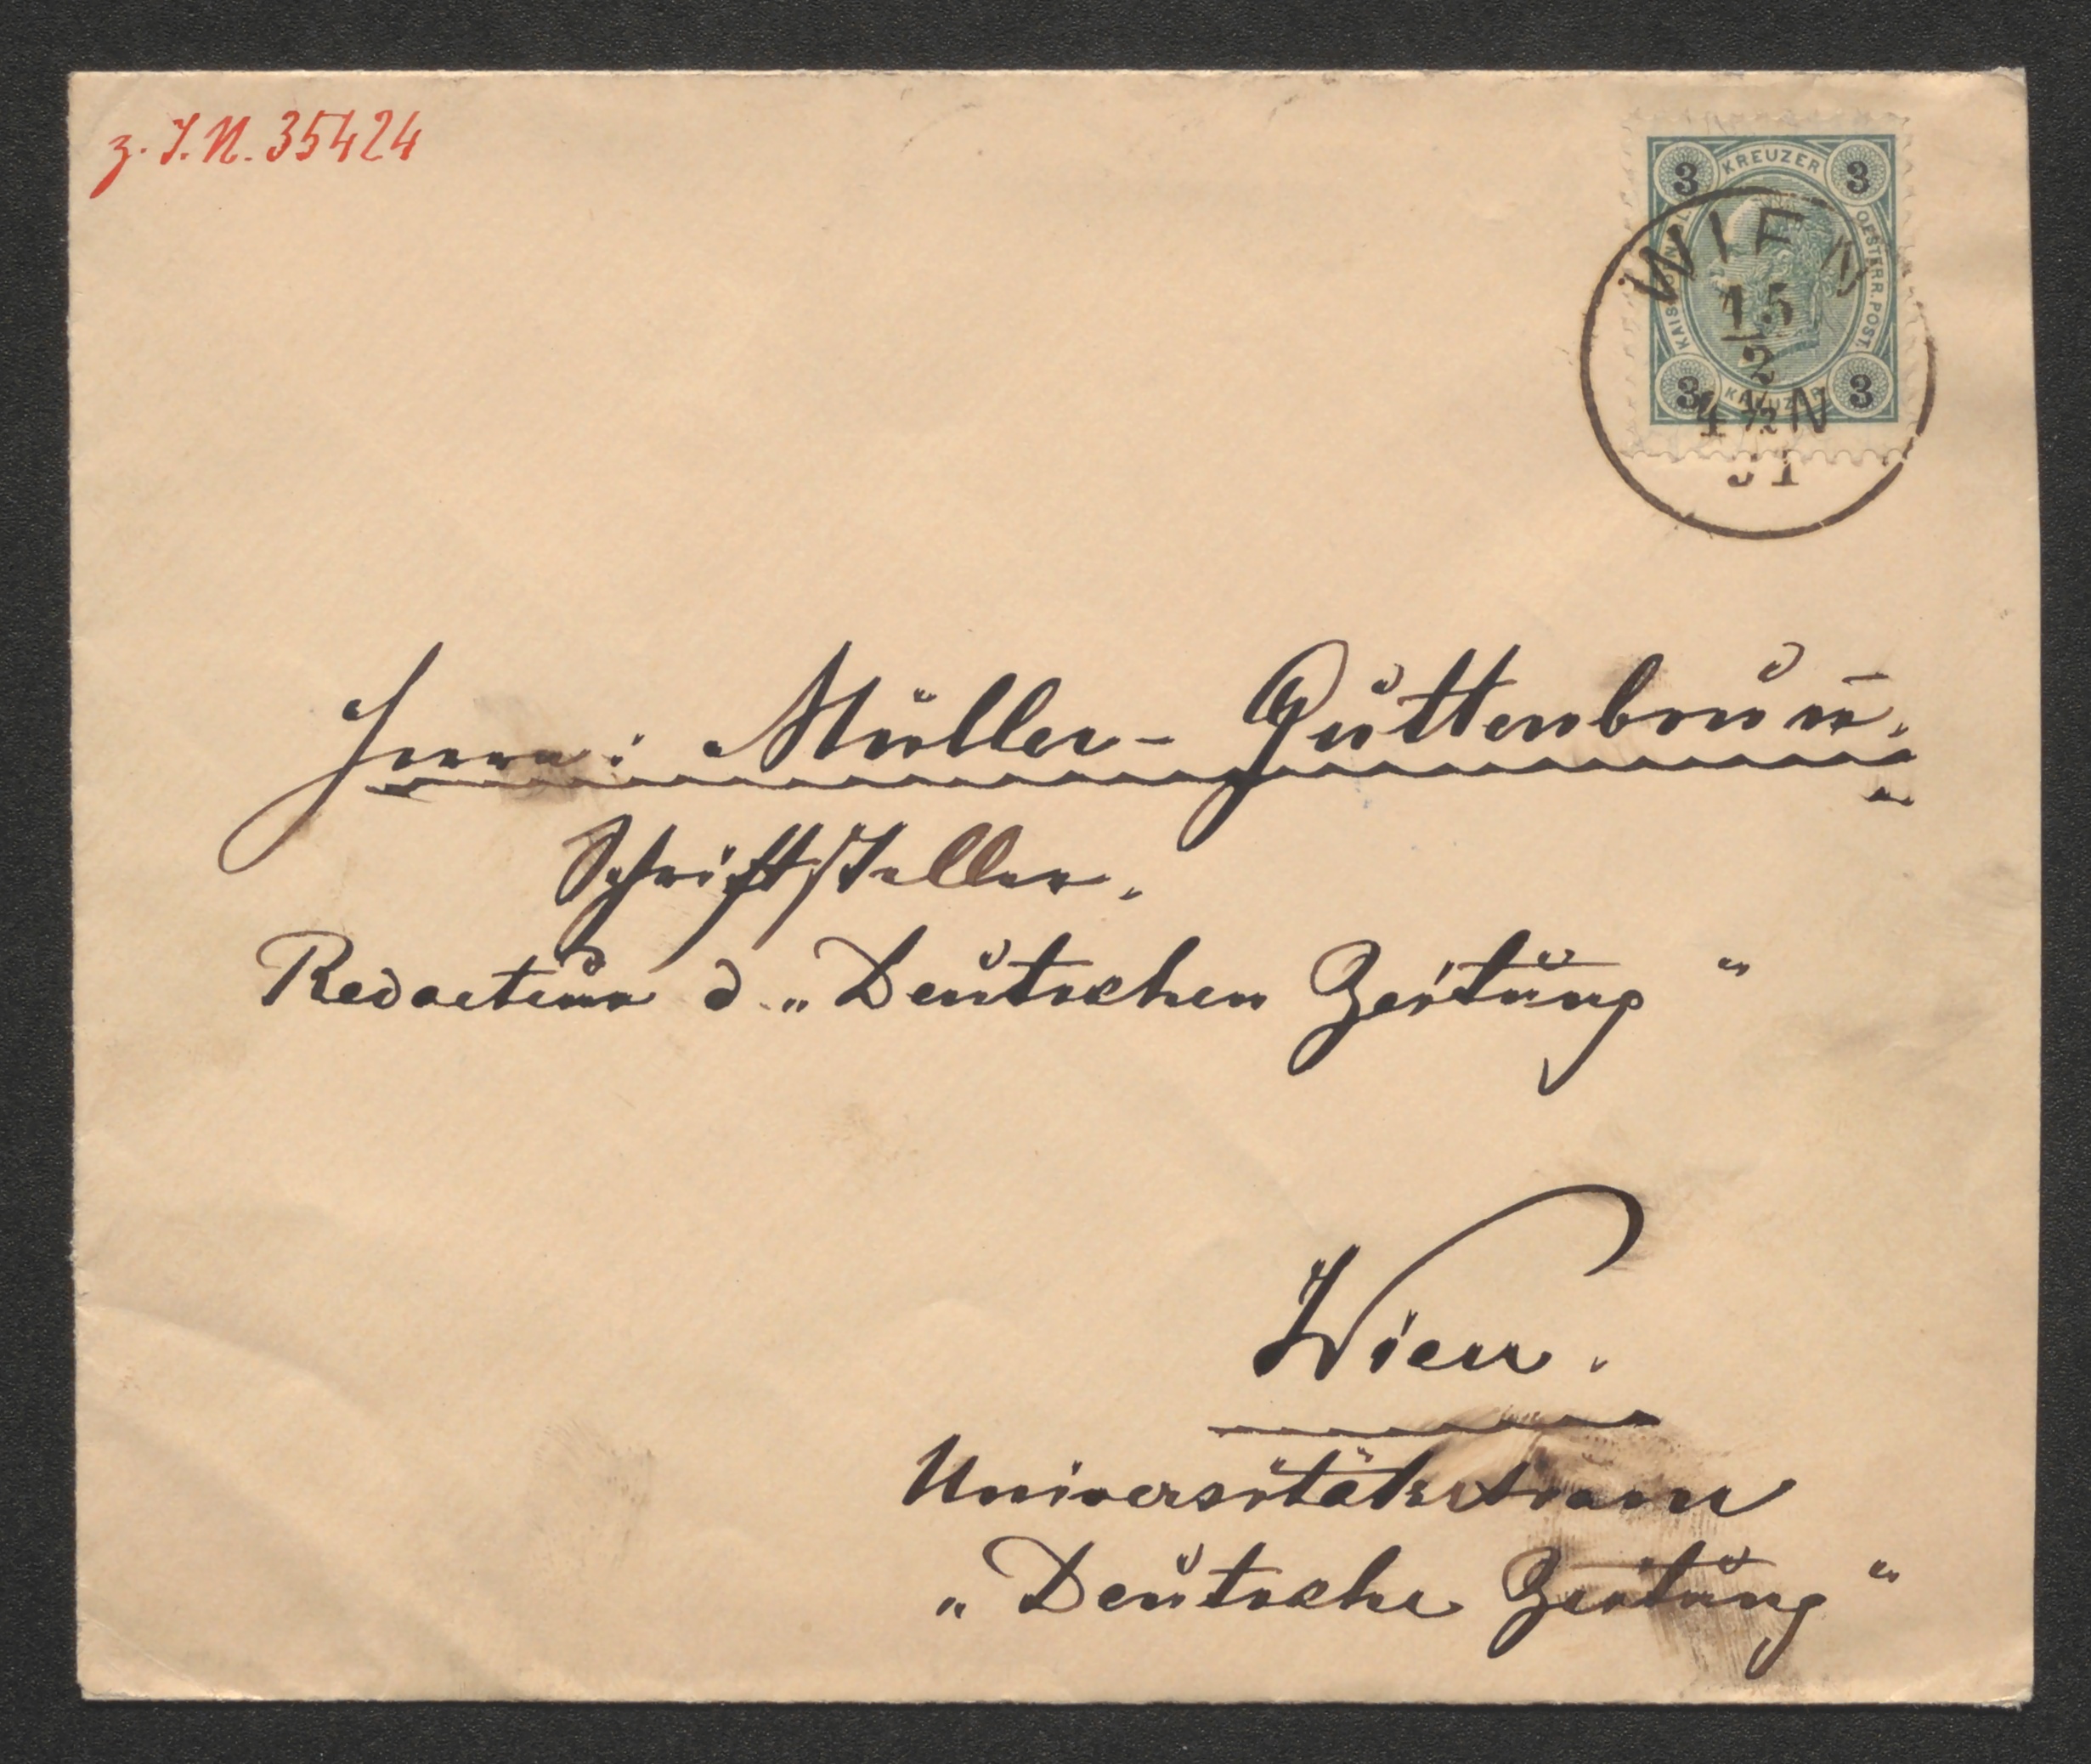 z. I.N. 35424
KREUZER
3 3
OESTERR. POST.
3 3
WIEN
15
2
4 ½ N
91
Herrn: Müller-Guttenbrun̄.
Schriftsteller.
Redacteur d. „Deutschen Zeitung“
Wien.
Universitätsstrasse
„Deutsche Zeitung“